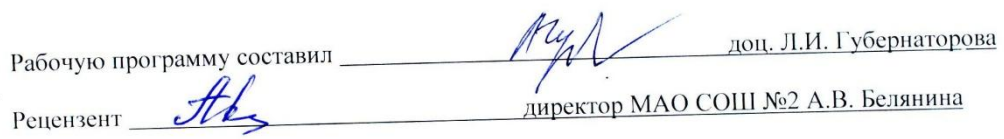 Рабочую программу составил доц. Л.И. Губернаторова
Рецензент директор МАО СОШ №2 А.В. Белянина